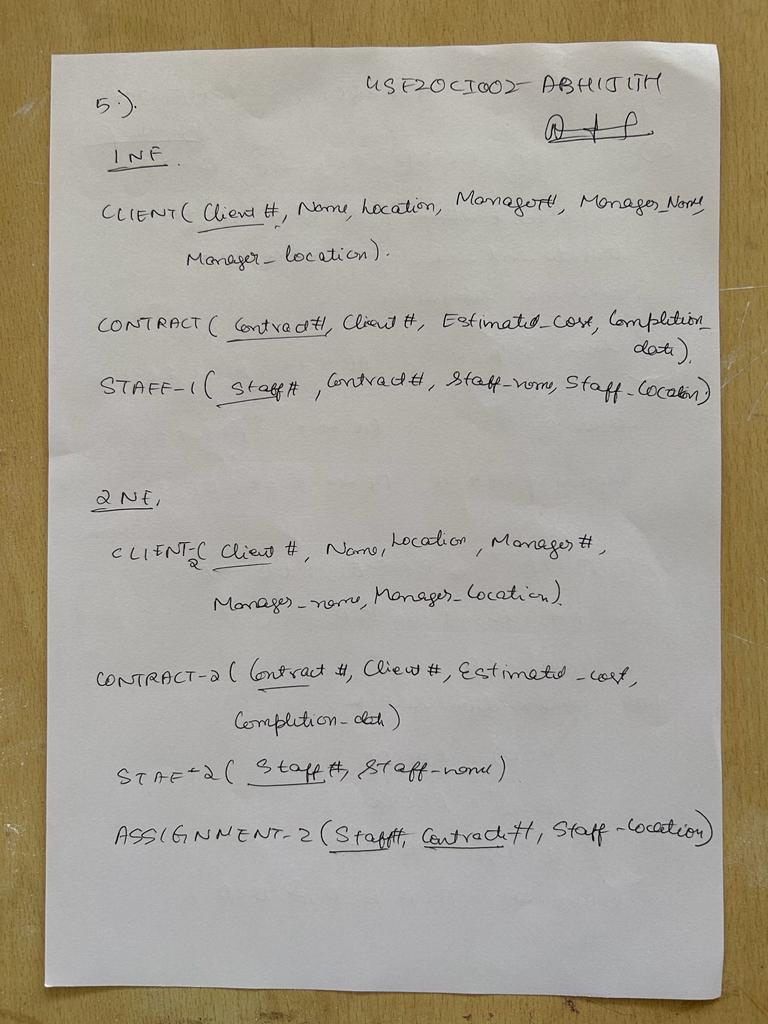 USF20CI002- ABHIJITH
5.).
1NF.
CLIENT( Client #, Name, Location, Manager#, Manager_Name,
Manager_location).
CONTRACT( Contract#, Client #, Estimated_cost, Complition_
date),
STAFF-1( Staff# , Contract#, Staff-name, Staff_Location)
2 NF,
CLIENT-2( Client #, Name, Location, Manager#,
Manager_name, Manager_Location).
CONTRACT-2( Contract #, Client #, Estimated_cost,
Complition_date)
STAF-2( Staff#, Staff-name)
ASSIGNMENT-2(Staff#, Contract#, Staff-Location)